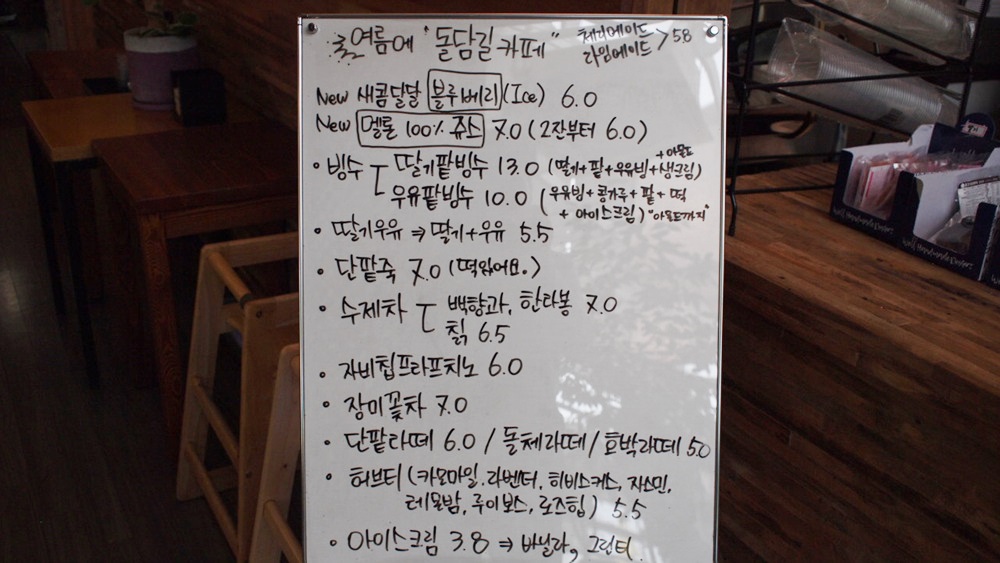 여름에 "돌담길 카페" 체리에이드
라임에이드 > 5.8
New 새콤달달 블루베리 (Ice) 6.0
New 멜론 100% 쥬스 7.0 (2잔부터 6.0)
• 빙수 딸기팥빙수 13.0 (딸기+팥+우유빙+생크림) +아몬드
우유팥빙수 10.0 (우유빙+콩가루+팥+떡
+아이스크림) "아몬드까지"
• 딸기우유 ⇒ 딸기+우유 5.5
• 단팥죽 7.0 (떡있어요.)
• 수제차 백향과, 한라봉 7.0
칡 6.5
• 자바칩프라프치노 6.0
• 장미꽃차 7.0
• 단팥라떼 6.0 / 돌체라떼 / 호박라떼 5.0
• 허브티 (카모마일, 라벤더, 히비스커스, 자스민,
레몬밤, 루이보스, 로즈힙) 5.5
• 아이스크림 3.8 ⇒ 바닐라, 그린티